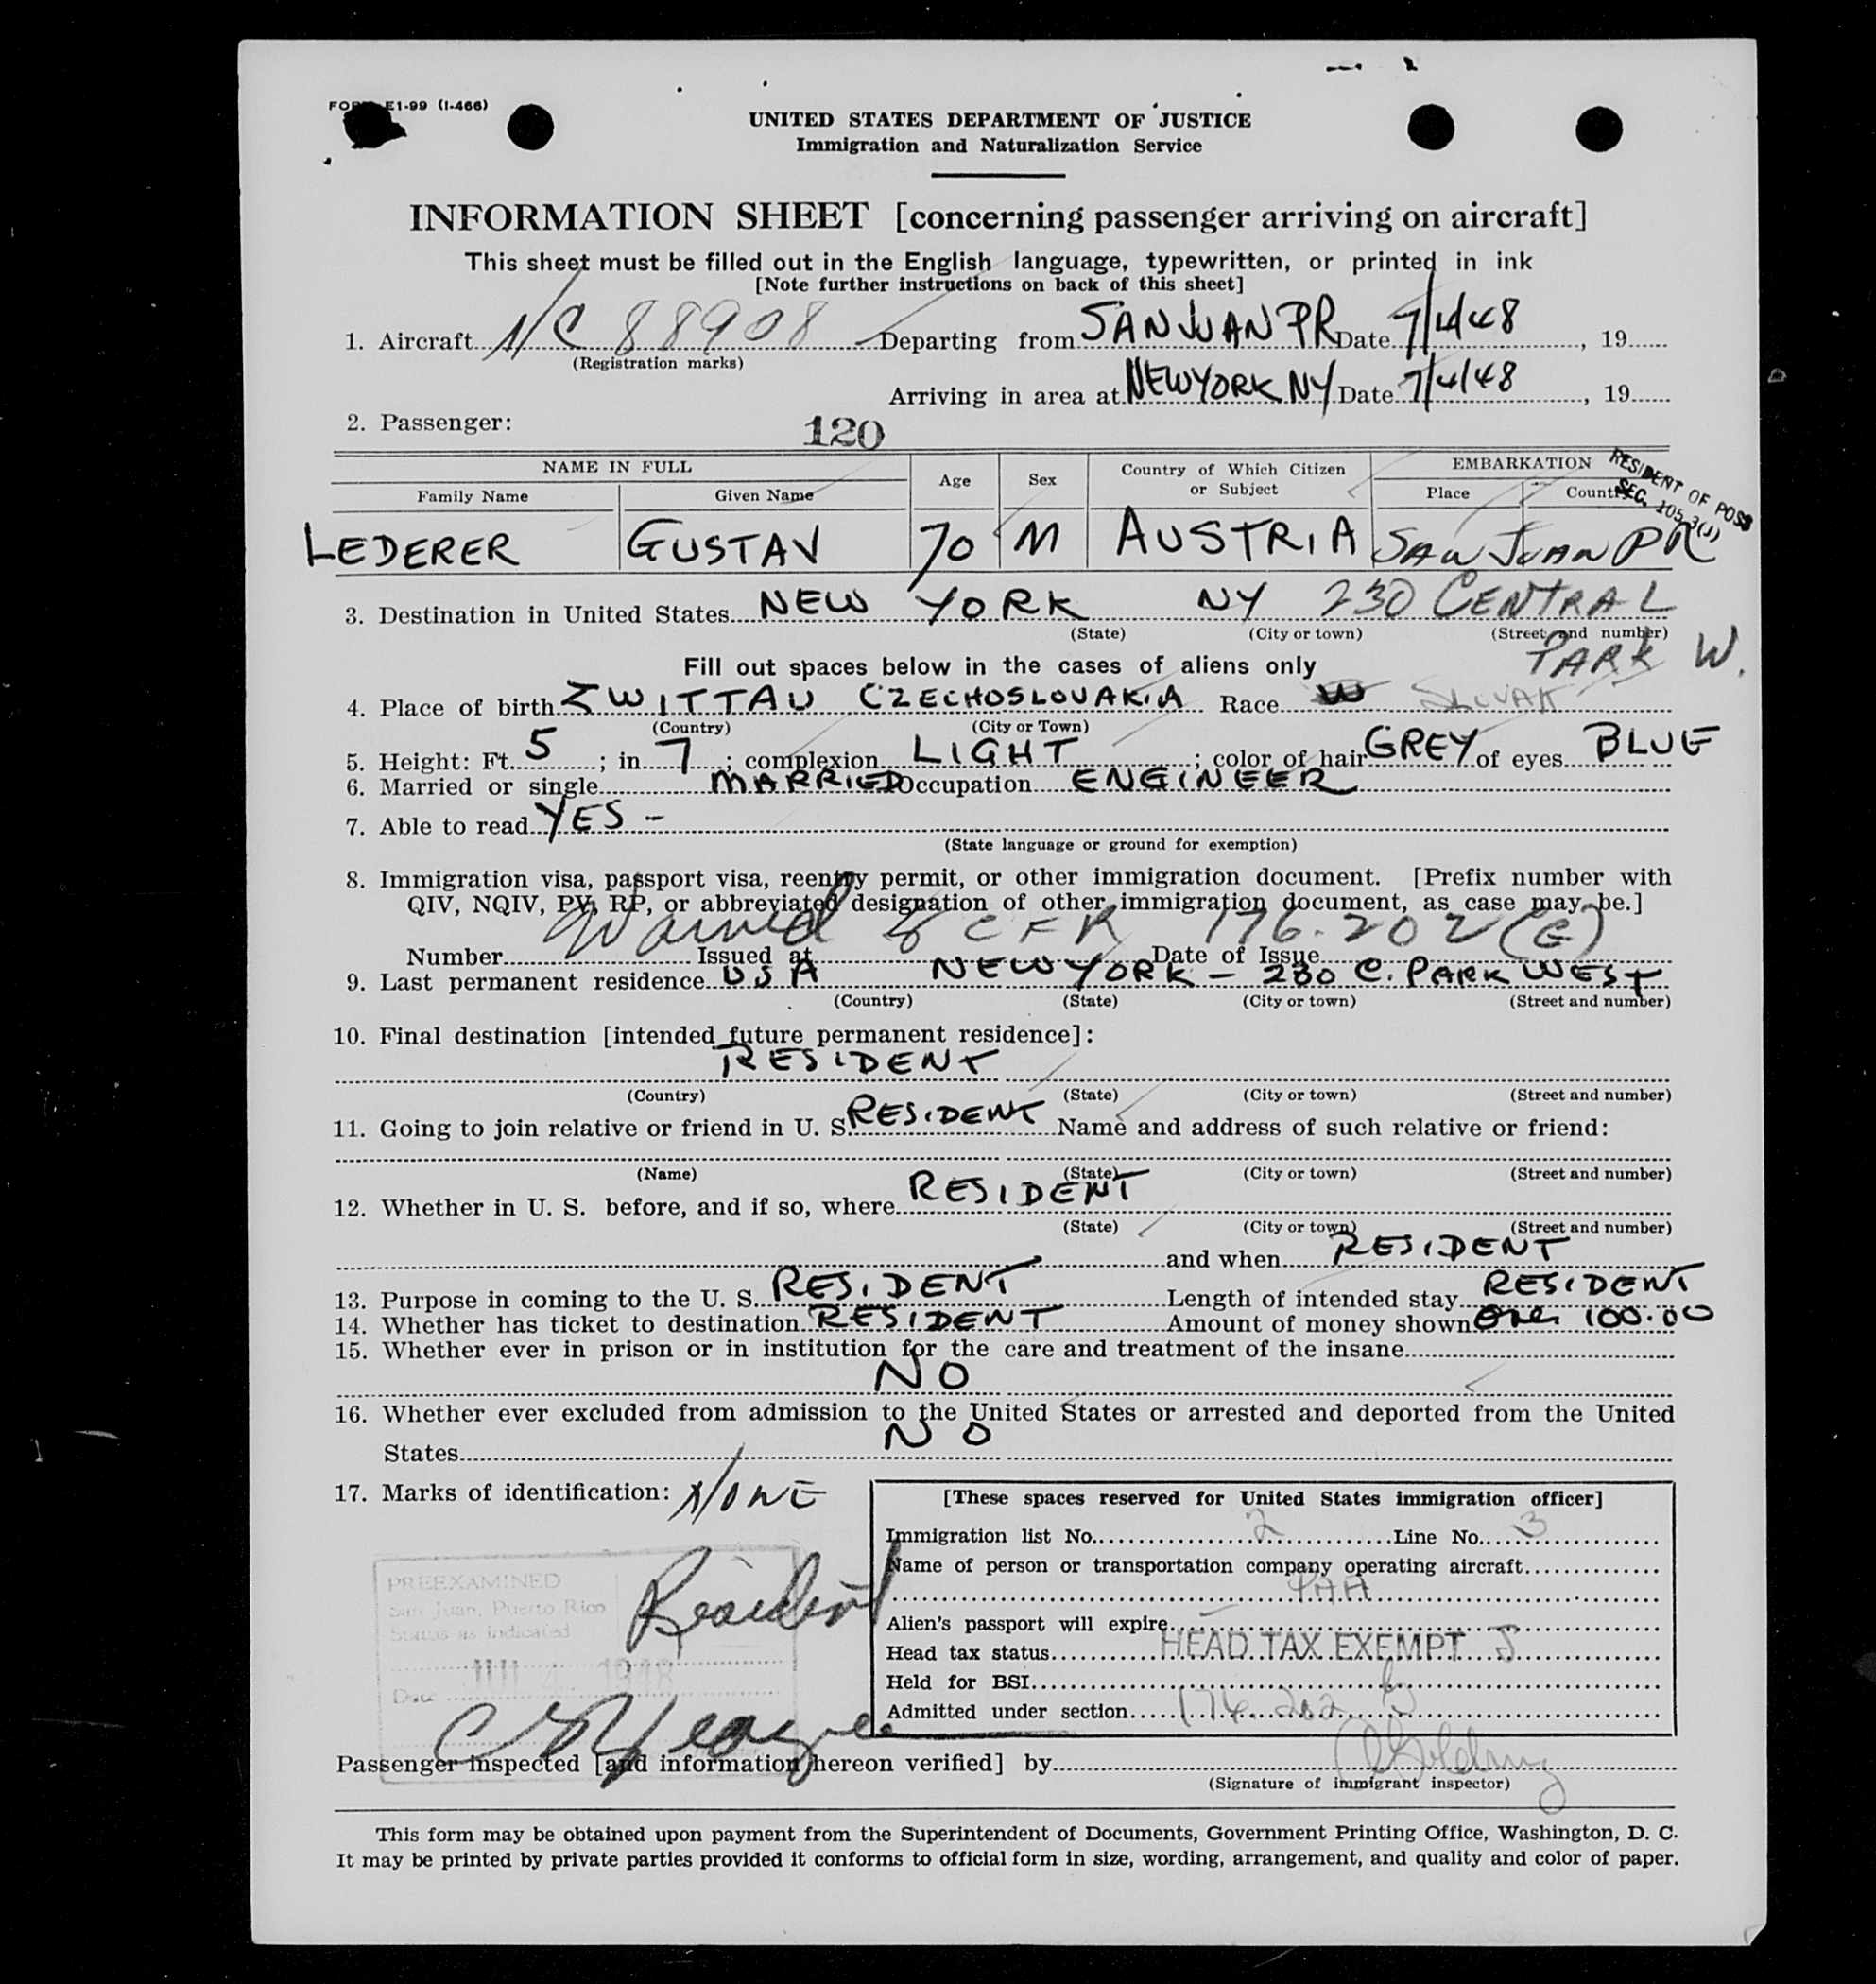 FORM E1-99 (I-466)
UNITED STATES DEPARTMENT OF JUSTICE
Immigration and Naturalization Service
INFORMATION SHEET [concerning passenger arriving on aircraft]
This sheet must be filled out in the English language, typewritten, or printed in ink
[Note further instructions on back of this sheet]
1. Aircraft N/C 88908 Departing from SAN JUAN PR Date 7/4/48, 19
(Registration marks)
Arriving in area at NEW YORK NY Date 7/4/48, 19
2. Passenger: 120
NAME IN FULL Age Sex Country of Which Citizen or Subject EMBARKATION
Family Name Given Name Place Country
RESIDENT OF POSS
SEC. 105.3(J)
LEDERER GUSTAV 70 M AUSTRIA SAN JUAN PR
3. Destination in United States NEW YORK NY 230 CENTRAL
(State) (City or town) (Street and number)
PARK W.
Fill out spaces below in the cases of aliens only
4. Place of birth ZWITTAU CZECHOSLOVAKIA Race W SLOVAK
(Country) (City or Town)
5. Height: Ft. 5; in. 7; complexion LIGHT; color of hair GREY of eyes BLUE
6. Married or single MARRIED Occupation ENGINEER
7. Able to read YES -
(State language or ground for exemption)
8. Immigration visa, passport visa, reentry permit, or other immigration document. [Prefix number with
QIV, NQIV, PV, RP, or abbreviated designation of other immigration document, as case may be.]
Waived 8 CFR 176.202(E)
Number Issued at Date of Issue
9. Last permanent residence USA NEW YORK - 230 C. PARK WEST
(Country) (State) (City or town) (Street and number)
10. Final destination [intended future permanent residence]:
RESIDENT
(Country) (State) (City or town) (Street and number)
11. Going to join relative or friend in U. S. RESIDENT Name and address of such relative or friend:
(Name) (State) (City or town) (Street and number)
12. Whether in U. S. before, and if so, where RESIDENT
(State) (City or town) (Street and number)
and when RESIDENT
13. Purpose in coming to the U. S. RESIDENT Length of intended stay RESIDENT
14. Whether has ticket to destination RESIDENT Amount of money shown Over 100.00
15. Whether ever in prison or in institution for the care and treatment of the insane
NO
16. Whether ever excluded from admission to the United States or arrested and deported from the United
States NO
17. Marks of identification: NONE
[These spaces reserved for United States immigration officer]
Immigration list No. 2 Line No. 3
Name of person or transportation company operating aircraft
PAA
Alien's passport will expire
Head tax status HEAD TAX EXEMPT
Held for BSI
Admitted under section 176.202
PREEXAMINED
San Juan, Puerto Rico
Status as indicated
Resident
Date JUL 4 1948
Passenger inspected [and information hereon verified] by
(Signature of immigrant inspector)
This form may be obtained upon payment from the Superintendent of Documents, Government Printing Office, Washington, D. C.
It may be printed by private parties provided it conforms to official form in size, wording, arrangement, and quality and color of paper.